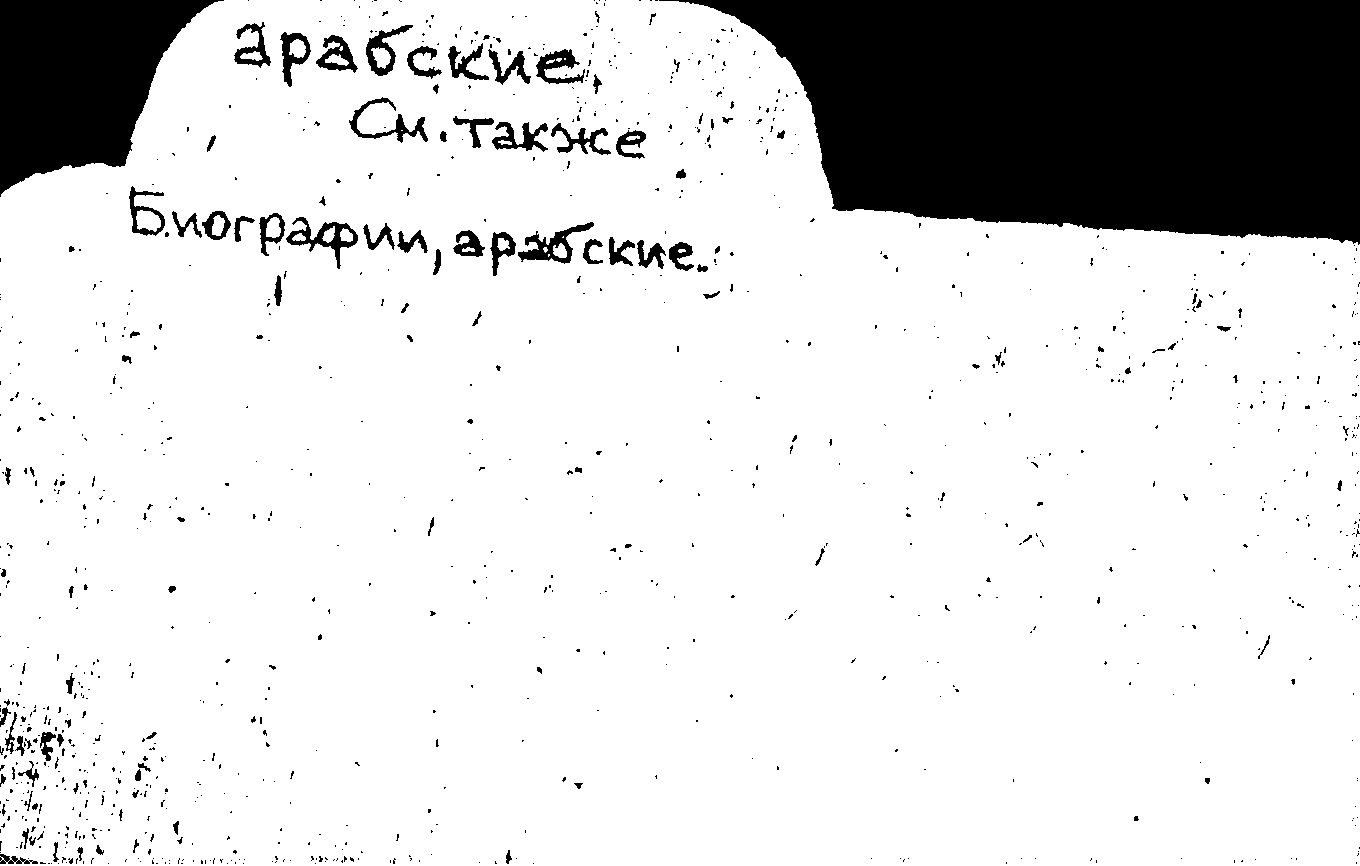 арабские.
См. также
Биографии, арабские.